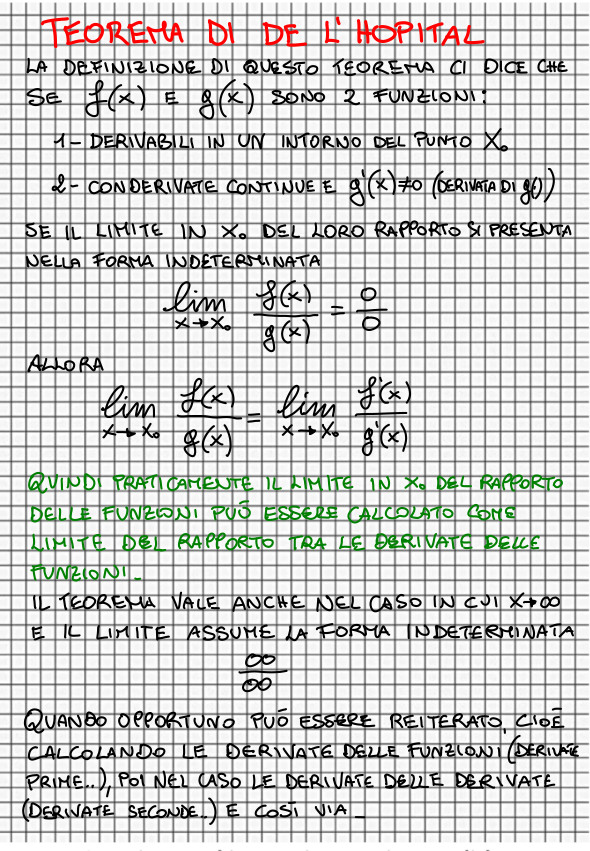 TEOREMA DI DE L'HOPITAL
LA DEFINIZIONE DI QUESTO TEOREMA CI DICE CHE
SE f(x) E g(x) SONO 2 FUNZIONI:
1- DERIVABILI IN UN INTORNO DEL PUNTO X₀
2- CON DERIVATE CONTINUE E g'(x)≠0 (DERIVATA DI g())
SE IL LIMITE IN X₀ DEL LORO RAPPORTO SI PRESENTA
NELLA FORMA INDETERMINATA
lim x→x₀ f(x)/g(x) = 0/0
ALLORA
lim x→x₀ f(x)/g(x) = lim x→x₀ f'(x)/g'(x)
QUINDI PRATICAMENTE IL LIMITE IN X₀ DEL RAPPORTO
DELLE FUNZIONI PUÒ ESSERE CALCOLATO COME
LIMITE DEL RAPPORTO TRA LE DERIVATE DELLE
FUNZIONI_
IL TEOREMA VALE ANCHE NEL CASO IN CUI X→∞
E IL LIMITE ASSUME LA FORMA INDETERMINATA
∞/∞
QUANDO OPPORTUNO PUÒ ESSERE REITERATO, CIOÈ
CALCOLANDO LE DERIVATE DELLE FUNZIONI (DERIVATE
PRIME..), POI NEL CASO LE DERIVATE DELLE DERIVATE
(DERIVATE SECONDE..) E COSÌ VIA_